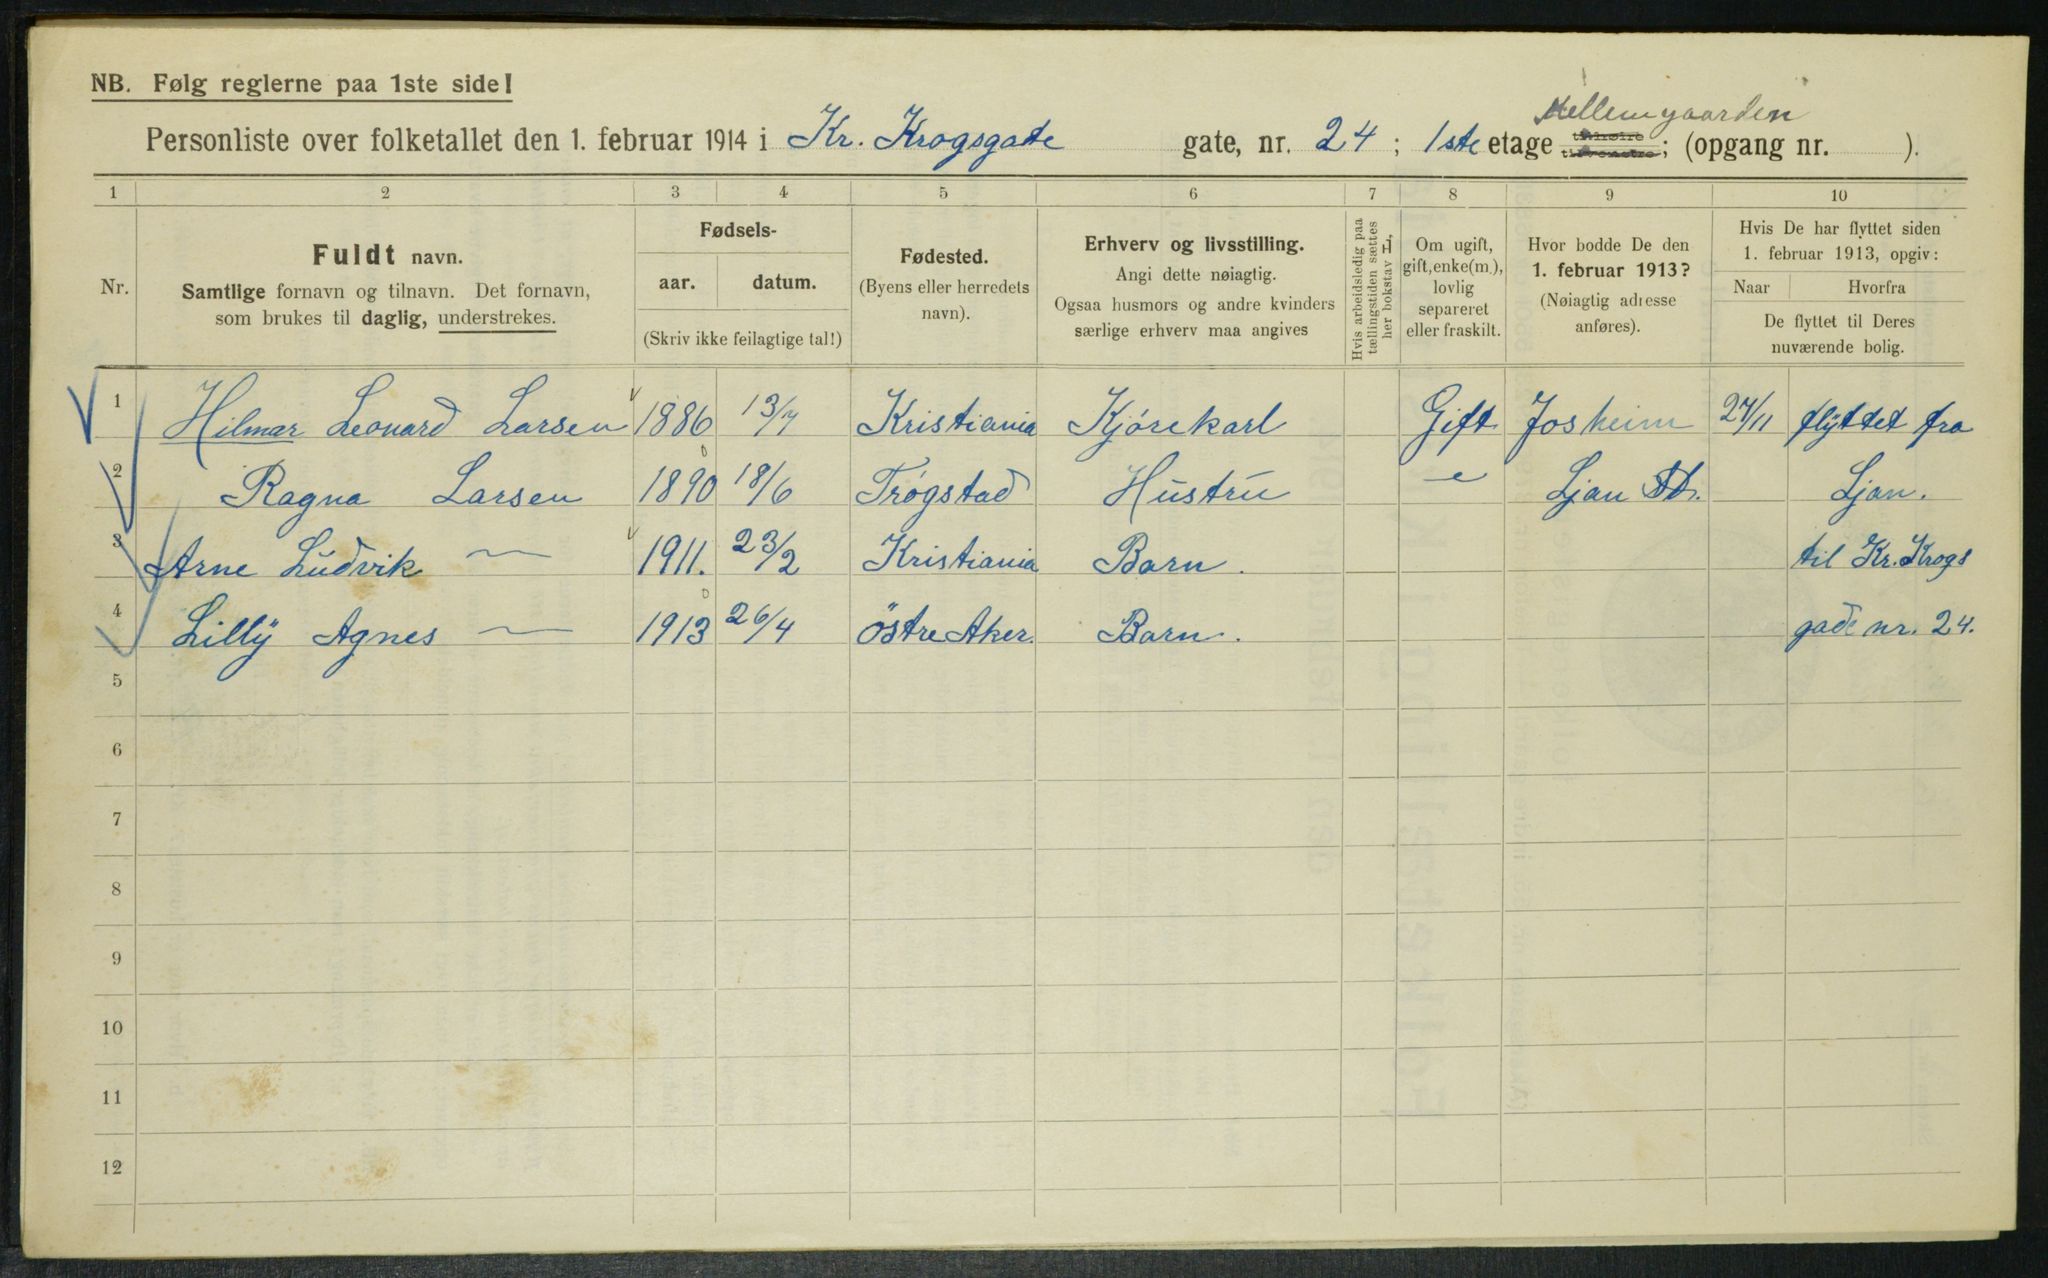 NB. Følg reglerne paa 1ste side!
Mellemgaarden
Personliste over folketallet den 1. februar 1914 i Kr. Krogsgade gate, nr. 24; 1ste etage tilhøire tilvenstre; (opgang nr. ).
1 2 3 4 5 6 7 8 9 10
Nr.
Fuldt navn.
Samtlige fornavn og tilnavn. Det fornavn,
som brukes til daglig, understrekes.
Fødsels-
aar. datum.
(Skriv ikke feilagtige tal!)
Fødested.
(Byens eller herredets
navn).
Erhverv og livsstilling.
Angi dette nøiagtig.
Ogsaa husmors og andre kvinders
særlige erhverv maa angives
Hvis arbeidsledig paa
tællingstiden sættes
her bokstav H,
Om ugift,
gift, enke(m.),
lovlig
separeret
eller fraskilt.
Hvor bodde De den
1. februar 1913?
(Nøiagtig adresse
anføres).
Hvis De har flyttet siden
1. februar 1913, opgiv:
Naar Hvorfra
De flyttet til Deres
nuværende bolig.
1 Hilmar Leonard Larsen 1886 13/7 Kristiania Kjørekarl Gift Josheim 27/11 flyttet fra
2 Ragna Larsen 1890 18/6 Trøgstad Hustru Ljan Ljan.
3 Arne Ludvik — 1911. 23/2 Kristiania Barn. til Kr. Krogs
4 Lilly Agnes — 1913 26/4 Östre Aker. Barn. gade nr. 24.
5
6
7
8
9
10
11
12